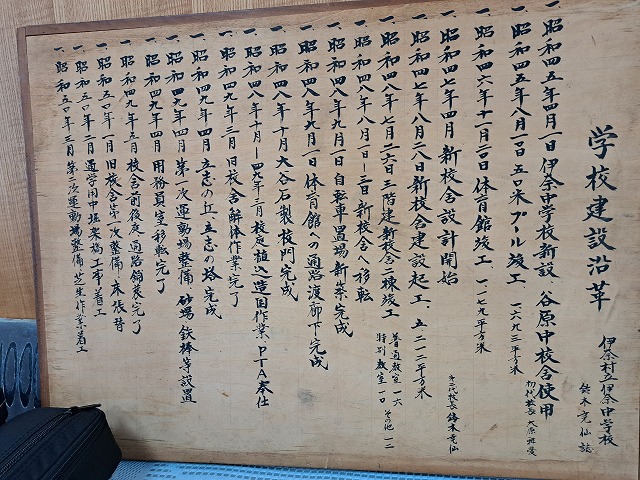 学校建設沿革
伊奈村立伊奈中学校
鈴木克仙誌
一、昭和四五年四月一日伊奈中学校新設、谷原中校舎使用
初代校長
一、昭和四五年八月一〇日五〇米プール竣工、一六九三平方米
一、昭和四六年十一月二〇日体育館竣工、一一七九平方米
一、昭和四七年四月新校舎設計開始
第二代校長鈴木克仙
一、昭和四七年八月二八日新校舎建設起工、五二一二平方米
一、昭和四八年七月二六日三階建新校舎二棟竣工
普通教室一六
特別教室一〇その他一二
一、昭和四八年八月一日〜三日新校舎へ移転
一、昭和四八年九月一日自転車置場新築完成
一、昭和四八年九月一日体育館への通路渡部下完成
一、昭和四八年十月大谷石製校門完成
一、昭和四八年十月〜四九年三月校庭植込造園作業PTA奉仕
一、昭和四九年三月旧校舎解体作業完了
一、昭和四九年四月立志の丘、立志の塔完成
一、昭和四九年四月第一次運動場整備砂場鉄棒等設置
一、昭和四九年四月用務員室移転完了
一、昭和四九年五月校舎前後庭通路舗装完了
一、昭和五〇年一月旧校舎第一次整備床張替
一、昭和五〇年二月通学用中堀橋工事着工
一、昭和五〇年三月第二次運動場整備芝生作業着工